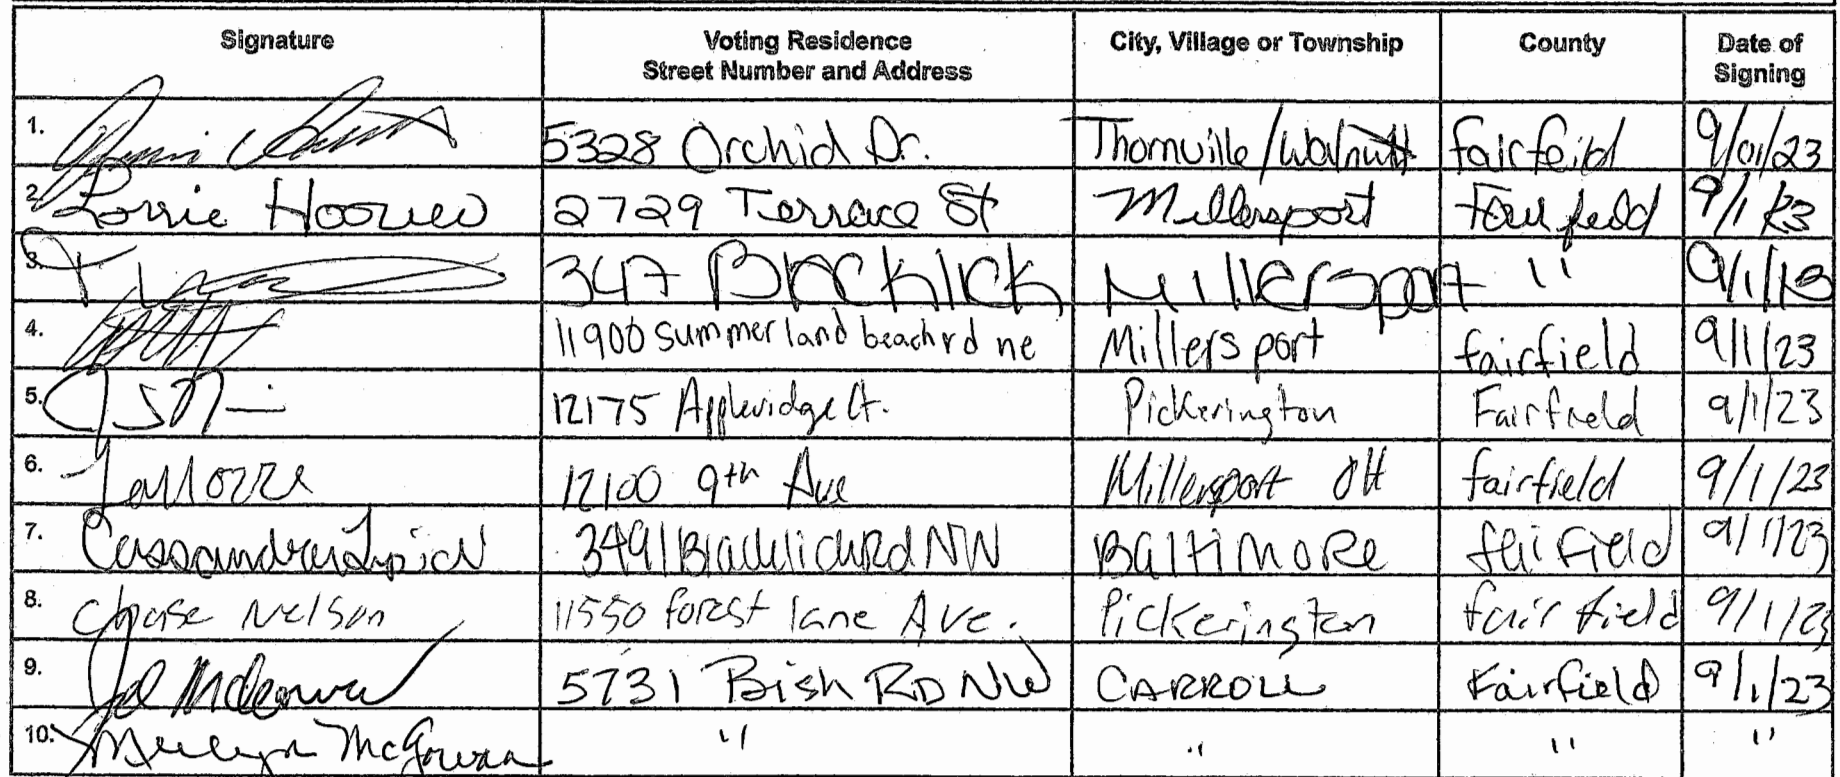 Signature Voting Residence Street Number and Address City, Village or Township County Date of Signing
1. 5328 Orchid Dr. Thornville/Walnutt fairfeild 9/01/23
2. Lorrie Hoover 2729 Terrace St Millersport Fairfield 9/1/23
3. 347 Millersport " 9/1/13
4. 11900 summerland beach rd ne Millersport fairfield 9/1/23
5. 12175 Appleridge Ct. Pickerington Fairfield 9/1/23
6. 12100 9th Ave Millersport OH fairfield 9/1/23
7. Cassandra 3491 Blacklick Rd NW BaltiMoRe fairField 9/1/23
8. chase Nelson 11550 forest lane Ave. Pickerington fair field 9/1/23
9. 5731 Bish RD NW CARROLL Fairfield 9/1/23
10. McGowan " " " "